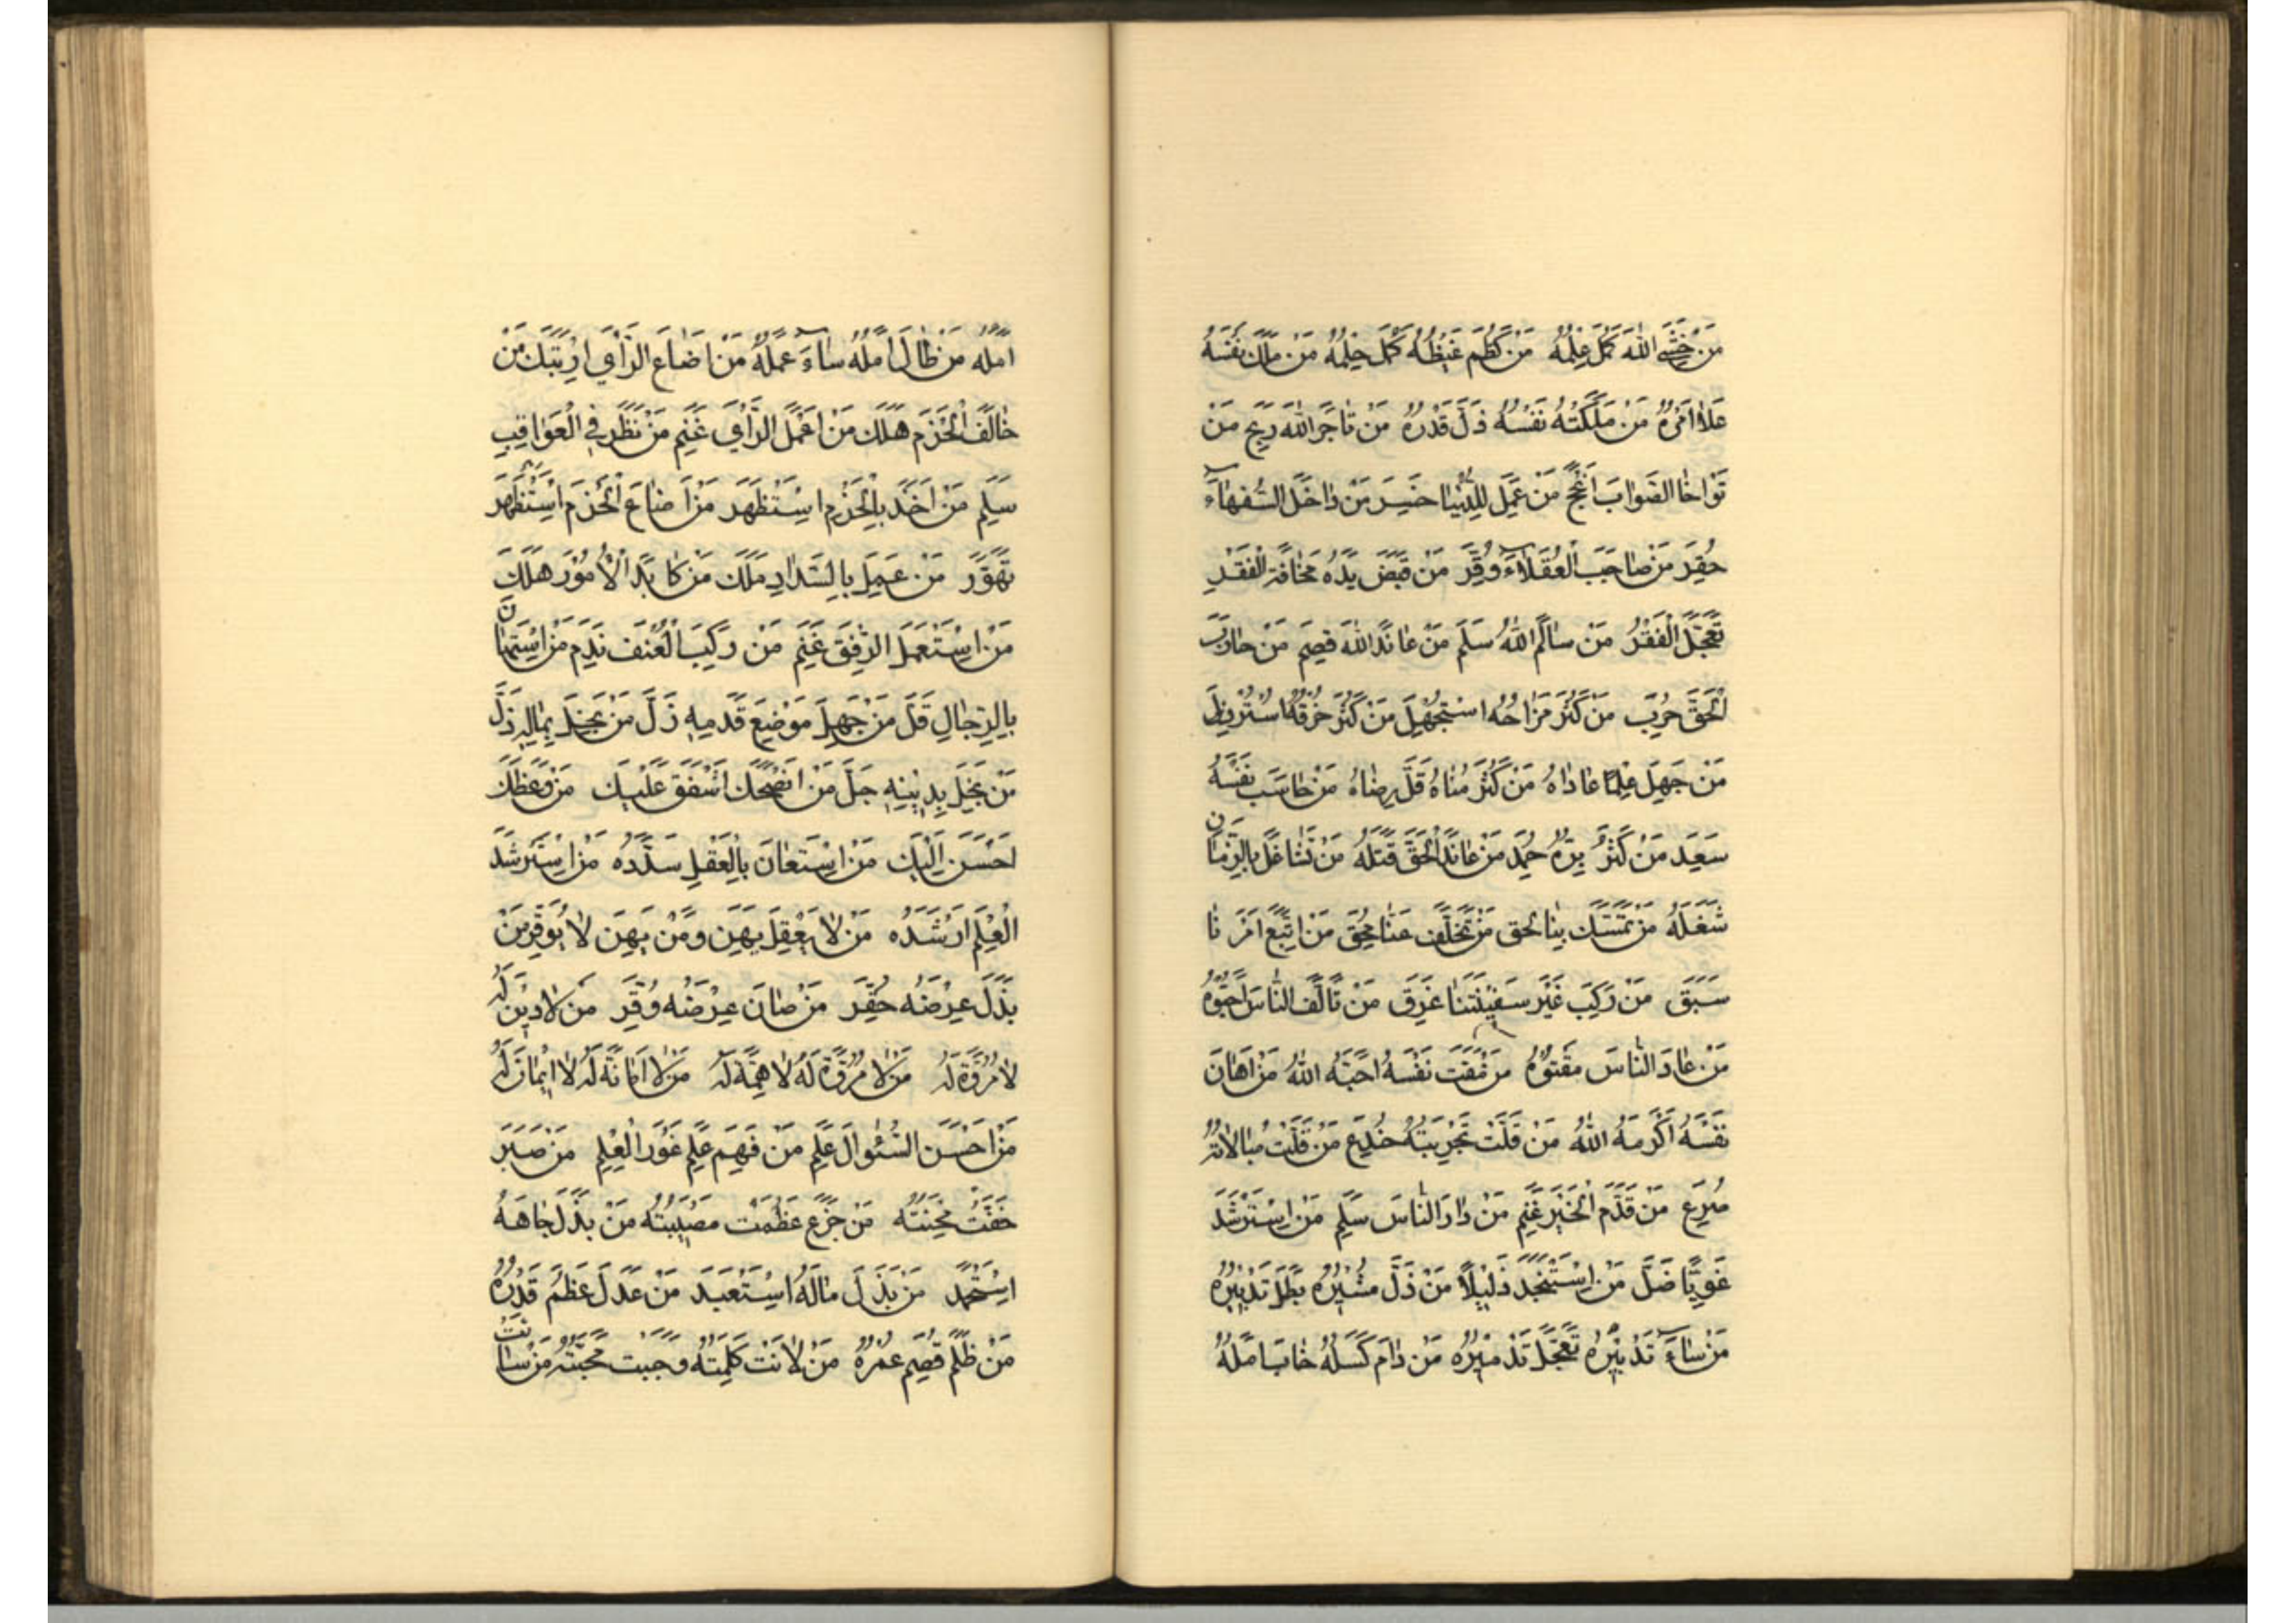 مَنْ خَشِيَ اللهَ كَمُلَ عِلْمُهُ مَنْ كَظَمَ غَيْظَهُ كَمُلَ حِلْمُهُ مَنْ مَلَكَ نَفْسَهُ
عَلَا اَمْرُهُ مَنْ مَلَكَتْهُ نَفْسُهُ ذَلَّ قَدْرُهُ مَنْ تَاجَرَ اللهَ رَبِحَ مَنْ
تَوَاخَا الصَّوَابَ اَنْجَحَ مَنْ عَمِلَ لِلدُّنْيَا خَسِرَ مَنْ دَاخَلَ السُّفَهَاءَ
حُقِّرَ مَنْ صَاحَبَ الْعُقَلَاءَ وُقِّرَ مَنْ قَبَضَ يَدَهُ مَخَافَةَ الْفَقْرِ
تَعَجَّلَ الْفَقْرُ مَنْ سَالَمَ اللهُ سَلِمَ مَنْ عَانَدَ اللهَ قُصِمَ مَنْ حَارَبَ
الْحَقَّ حُرِبَ مَنْ كَثُرَ مَزَاحُهُ اسْتُجْهِلَ مَنْ كَثُرَ خُرْقُهُ اسْتُرْذِلَ
مَنْ جَهِلَ عِلْمًا عَادَاهُ مَنْ كَثُرَ مُنَاهُ قَلَّ رِضَاهُ مَنْ حَاسَبَ نَفْسَهُ
سَعِدَ مَنْ كَثُرَ بِرُّهُ حُمِدَ مَنْ عَانَدَ الْحَقَّ قَتَلَهُ مَنْ تَشَاغَلَ بِالزَّمَانِ
شَغَلَهُ مَنْ تَمَسَّكَ بِنَا لَحِقَ مَنْ تَخَلَّفَ عَنَّا مُحِقَ مَنْ اتَّبَعَ اَمْرَنَا
سَبَقَ مَنْ رَكِبَ غَيْرَ سَفِينَتِنَا غَرِقَ مَنْ تَاَلَّفَ النَّاسَ اَحَبُّوهُ
مَنْ عَادَ النَّاسَ مَقَتُوهُ مَنْ مَقَتَ نَفْسَهُ اَحَبَّهُ اللهُ مَنْ اَهَانَ
نَفْسَهُ اَكْرَمَهُ اللهُ مَنْ قَلَّتْ تَجْرِبَتُهُ خُدِعَ مَنْ قَلَّتْ مُبَالَاتُهُ
صُرِعَ مَنْ قَدَّمَ الْخَيْرَ غَنِمَ مَنْ دَارَ النَّاسَ سَلِمَ مَنِ اسْتَرْشَدَ
غَوِيًّا ضَلَّ مَنِ اسْتَنْجَدَ ذَلِيلًا مَنْ ذَلَّ مُشِيرُهُ بَطَلَ تَدْبِيرُهُ
مَنْ سَاءَ تَدْبِيرُهُ تَعَجَّلَ تَدْمِيرُهُ مَنْ دَامَ كَسَلُهُ خَابَ اَمَلُهُ
اَمَلُهُ مَنْ طَالَ اَمَلُهُ سَاءَ عَمَلُهُ مَنْ اَضَاعَ الرَّأْيَ ارْتَبَكَ مَنْ
خَالَفَ الْحَزْمَ هَلَكَ مَنْ اَعْمَلَ الرَّأْيَ غَنِمَ مَنْ نَظَرَ فِي الْعَوَاقِبِ
سَلِمَ مَنْ اَخَذَ بِالْحَزْمِ اسْتَظْهَرَ مَنْ اَضَاعَ الْحَزْمَ اسْتُظْهِرَ
تَهَوَّرَ مَنْ عَمِلَ بِالسَّدَادِ مَلَكَ مَنْ كَابَدَ الْاُمُورَ هَلَكَ
مَنِ اسْتَعْمَلَ الرِّفْقَ غَنِمَ مَنْ رَكِبَ الْعُنْفَ نَدِمَ مَنِ اسْتَهَانَ
بِالرِّجَالِ قَلَّ مَنْ جَهِلَ مَوْضِعَ قَدَمِهِ زَلَّ مَنْ بَخِلَ بِمَالِهِ ذَلَّ
مَنْ بَخِلَ بِدِينِهِ جَلَّ مَنْ انْصَحَكَ اشْفَقَ عَلَيْكَ مَنْ وَعَظَكَ
اَحْسَنَ اِلَيْكَ مَنِ اسْتَعَانَ بِالْعَقْلِ سَدَّدَهُ مَنِ اسْتَرْشَدَ
الْعِلْمَ اَرْشَدَهُ مَنْ لَا يَعْقِلْ يَهِنْ وَمَنْ يَهِنْ لَا يُوَقَّرْ مَنْ
بَذَلَ عِرْضَهُ حُقِّرَ مَنْ صَانَ عِرْضَهُ وُقِّرَ مَنْ لَا دِينَ لَهُ
لَا مُرُوَّةَ لَهُ مَنْ لَا مُرُوَّةَ لَهُ لَا هِمَّةَ لَهُ مَنْ لَا اَمَانَةَ لَهُ لَا اِيمَانَ لَهُ
مَنْ اَحْسَنَ السُّئُوالَ عَلِمَ مَنْ فَهِمَ عَلِمَ غَوْرَ الْعِلْمِ مَنْ صَبَرَ
خَفَّتْ مِحْنَتُهُ مَنْ جَزِعَ عَظُمَتْ مُصِيبَتُهُ مَنْ بَذَلَ جَاهَهُ
اسْتُحْمِدَ مَنْ بَذَلَ مَالَهُ اسْتَعْبَدَ مَنْ عَدَلَ عَظُمَ قَدْرُهُ
مَنْ ظَلَمَ قُصِمَ عُمْرُهُ مَنْ لَانَتْ كَلِمَتُهُ وَجَبَتْ مَحَبَّتُهُ مَنْ سَائَتْ